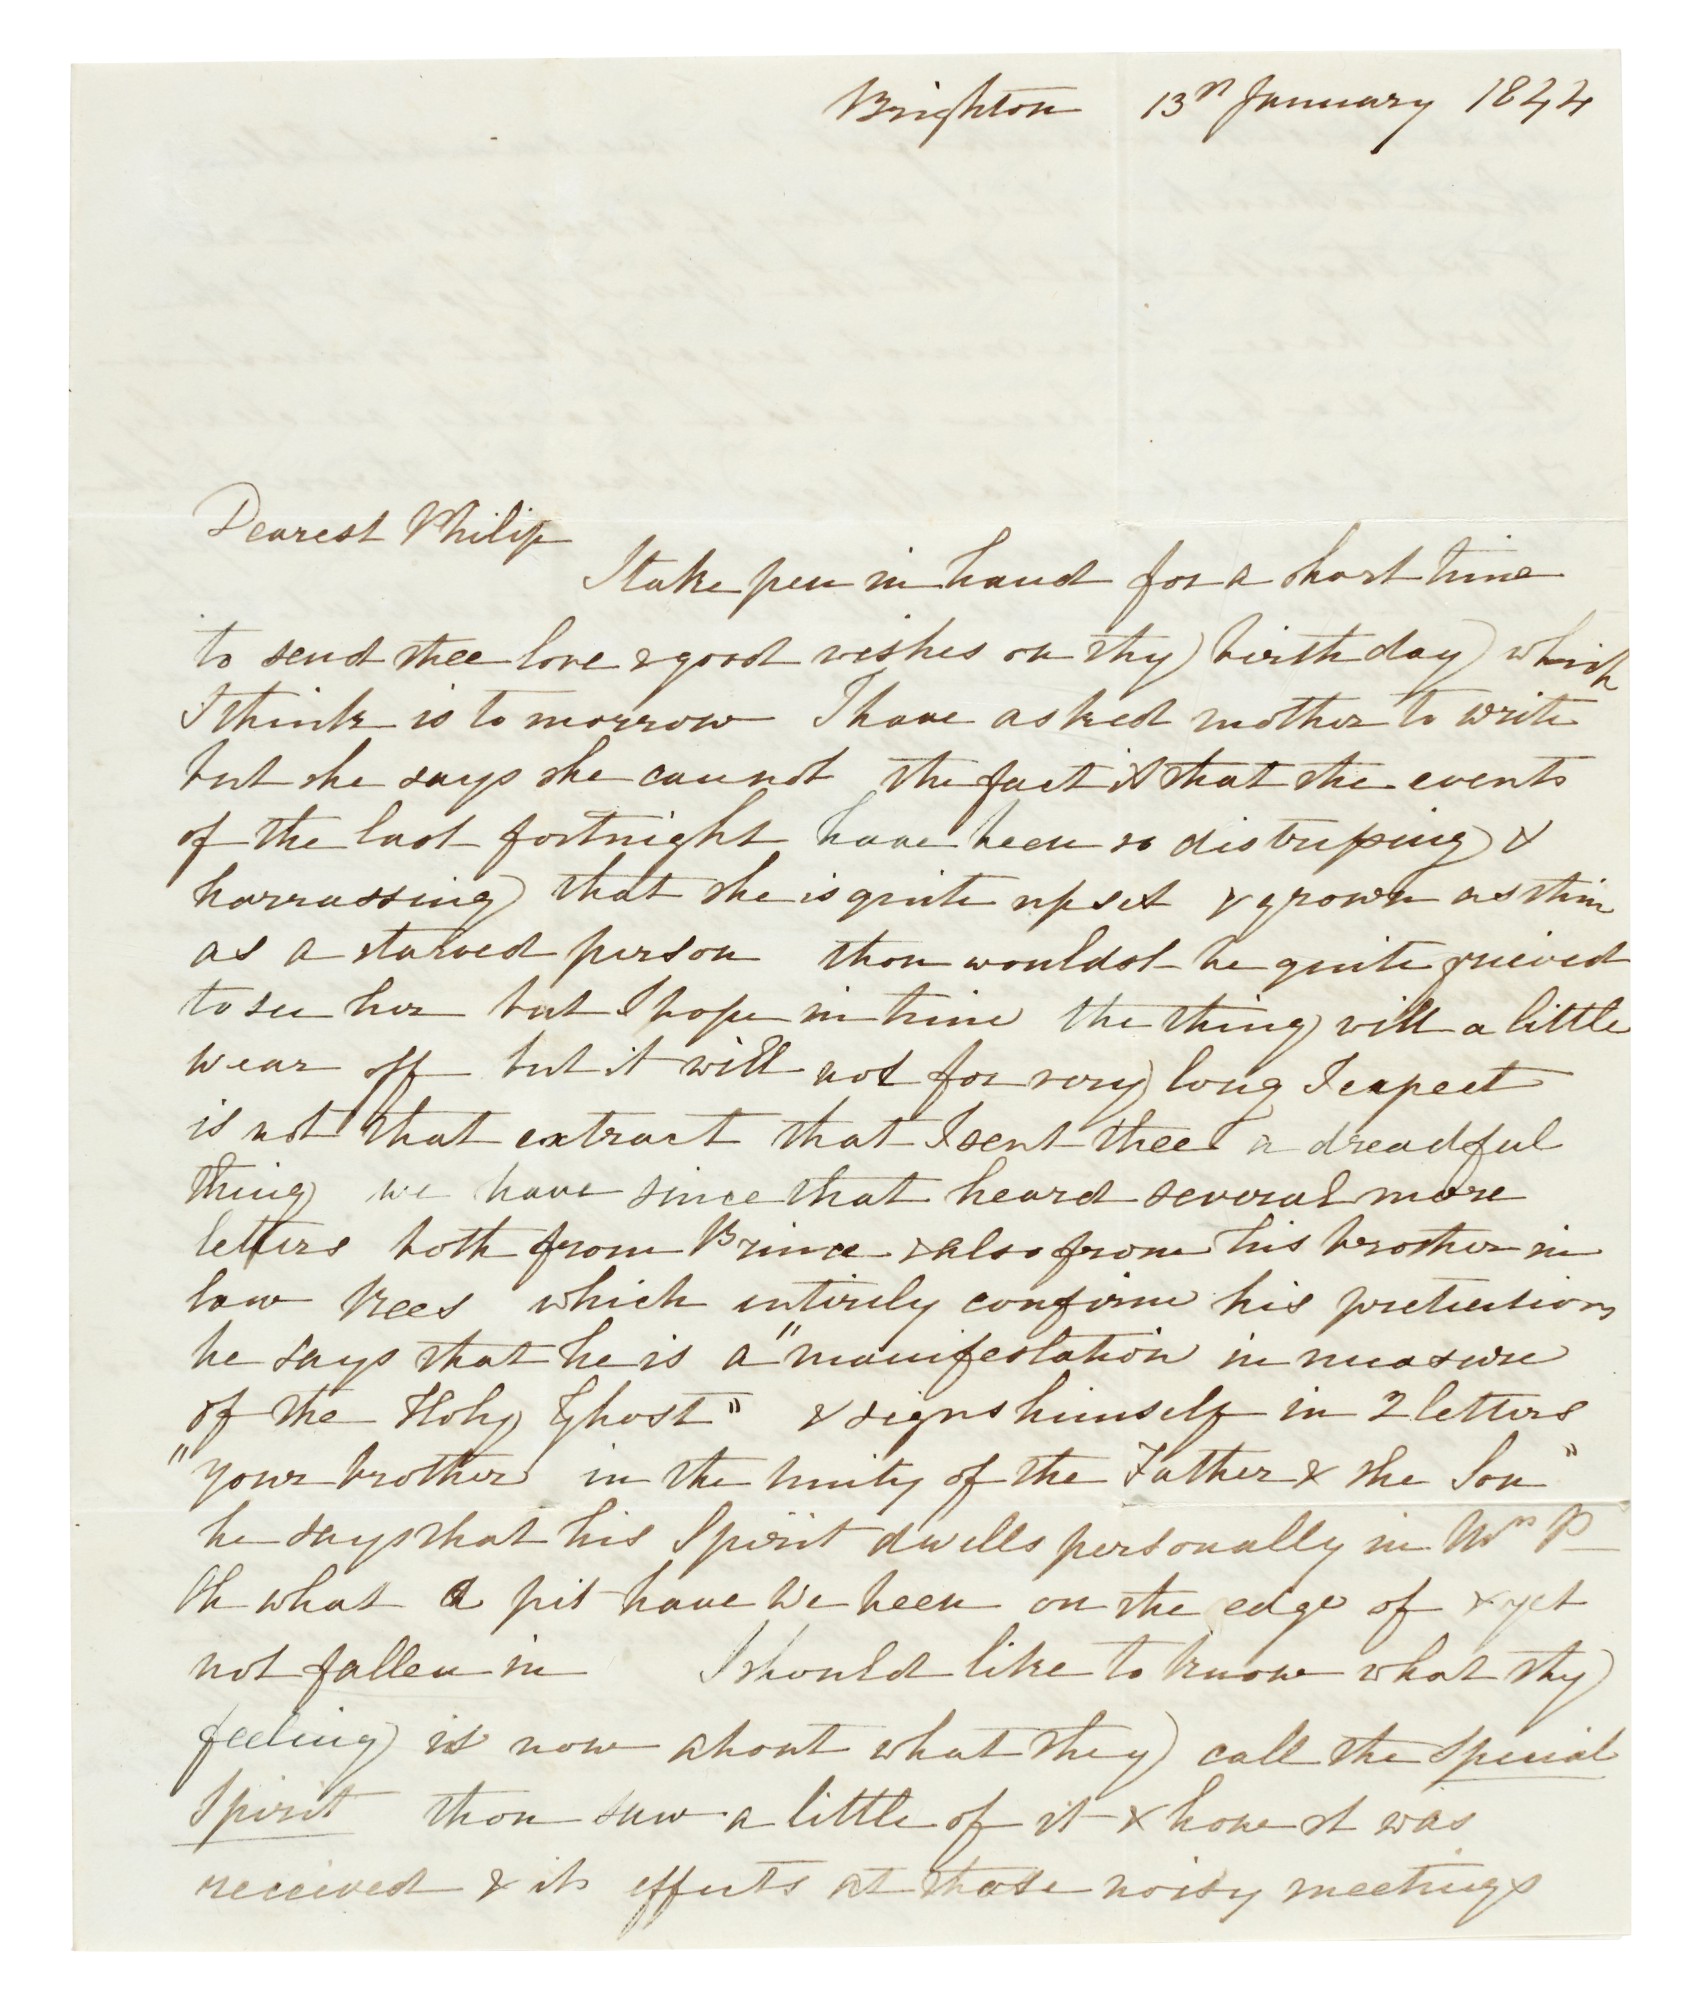 Brighton 13th January 1844
Dearest Philip
I take pen in hand for a short time
to send thee love & good wishes on thy birthday which
I think is tomorrow I have asked mother to write
but she says she cannot the fact is that the events
of the last fortnight have been so distressing &
harrassing that she is quite upset & grown as thin
as a starved person thou wouldst be quite grieved
to see her but I hope in time the thing will a little
wear off but it will not for very long I expect
is not that extract that I sent thee a dreadful
thing we have since that heard several more
letters both from Prince & also from his brother in
law Rees which entirely confirm his pretentions
he says that he is a "manifestation in measure
of the Holy Ghost" & signs himself in 2 letters
"your brother in the Unity of the Father & the Son"
he says that his Spirit dwells personally in Mrs P
Oh what a pit have we been on the edge of & yet
not fallen in I should like to know what thy
feeling is now about what they call the special
Spirit thou saw a little of it & how it was
received & its effects at those noisy meetings